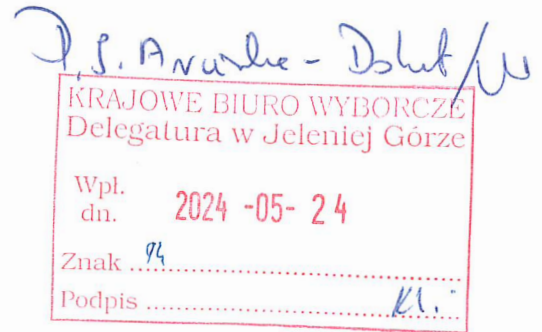 KRAJOWE BIURO WYBORCZE
Delegatura w Jeleniej Górze
Wpł.
dn. 2024 -05- 24
Znak 94
Podpis